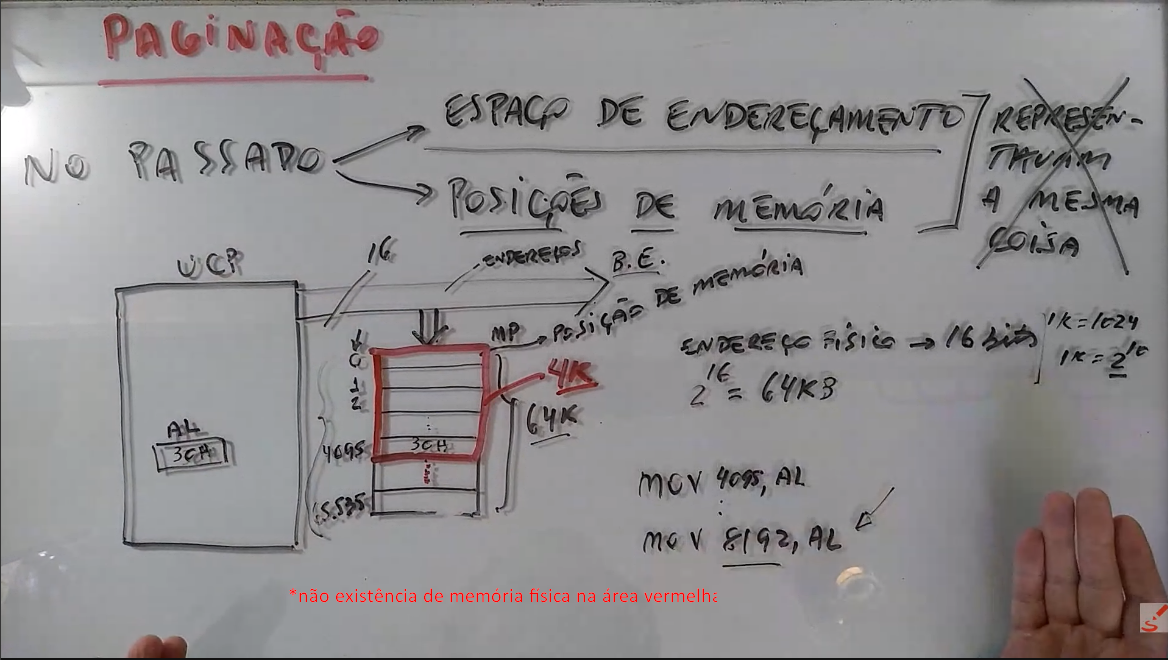 PAGINAÇÃO
NO PASSADO
ESPAÇO DE ENDEREÇAMENTO
POSIÇÕES DE MEMÓRIA
REPRESEN-
TAVAM
A MESMA
COISA
UCP
16
ENDEREÇOS
B.E.
MP
POSIÇÃO DE MEMÓRIA
0
1
2
4095
3CH
5.535
4K
64K
AL
3CH
ENDEREÇO FÍSICO → 16 bits
1K=1024
1K=2¹⁰
2¹⁶ = 64KB
MOV 4095, AL
MOV 8192, AL
*não existência de memória física na área vermelha